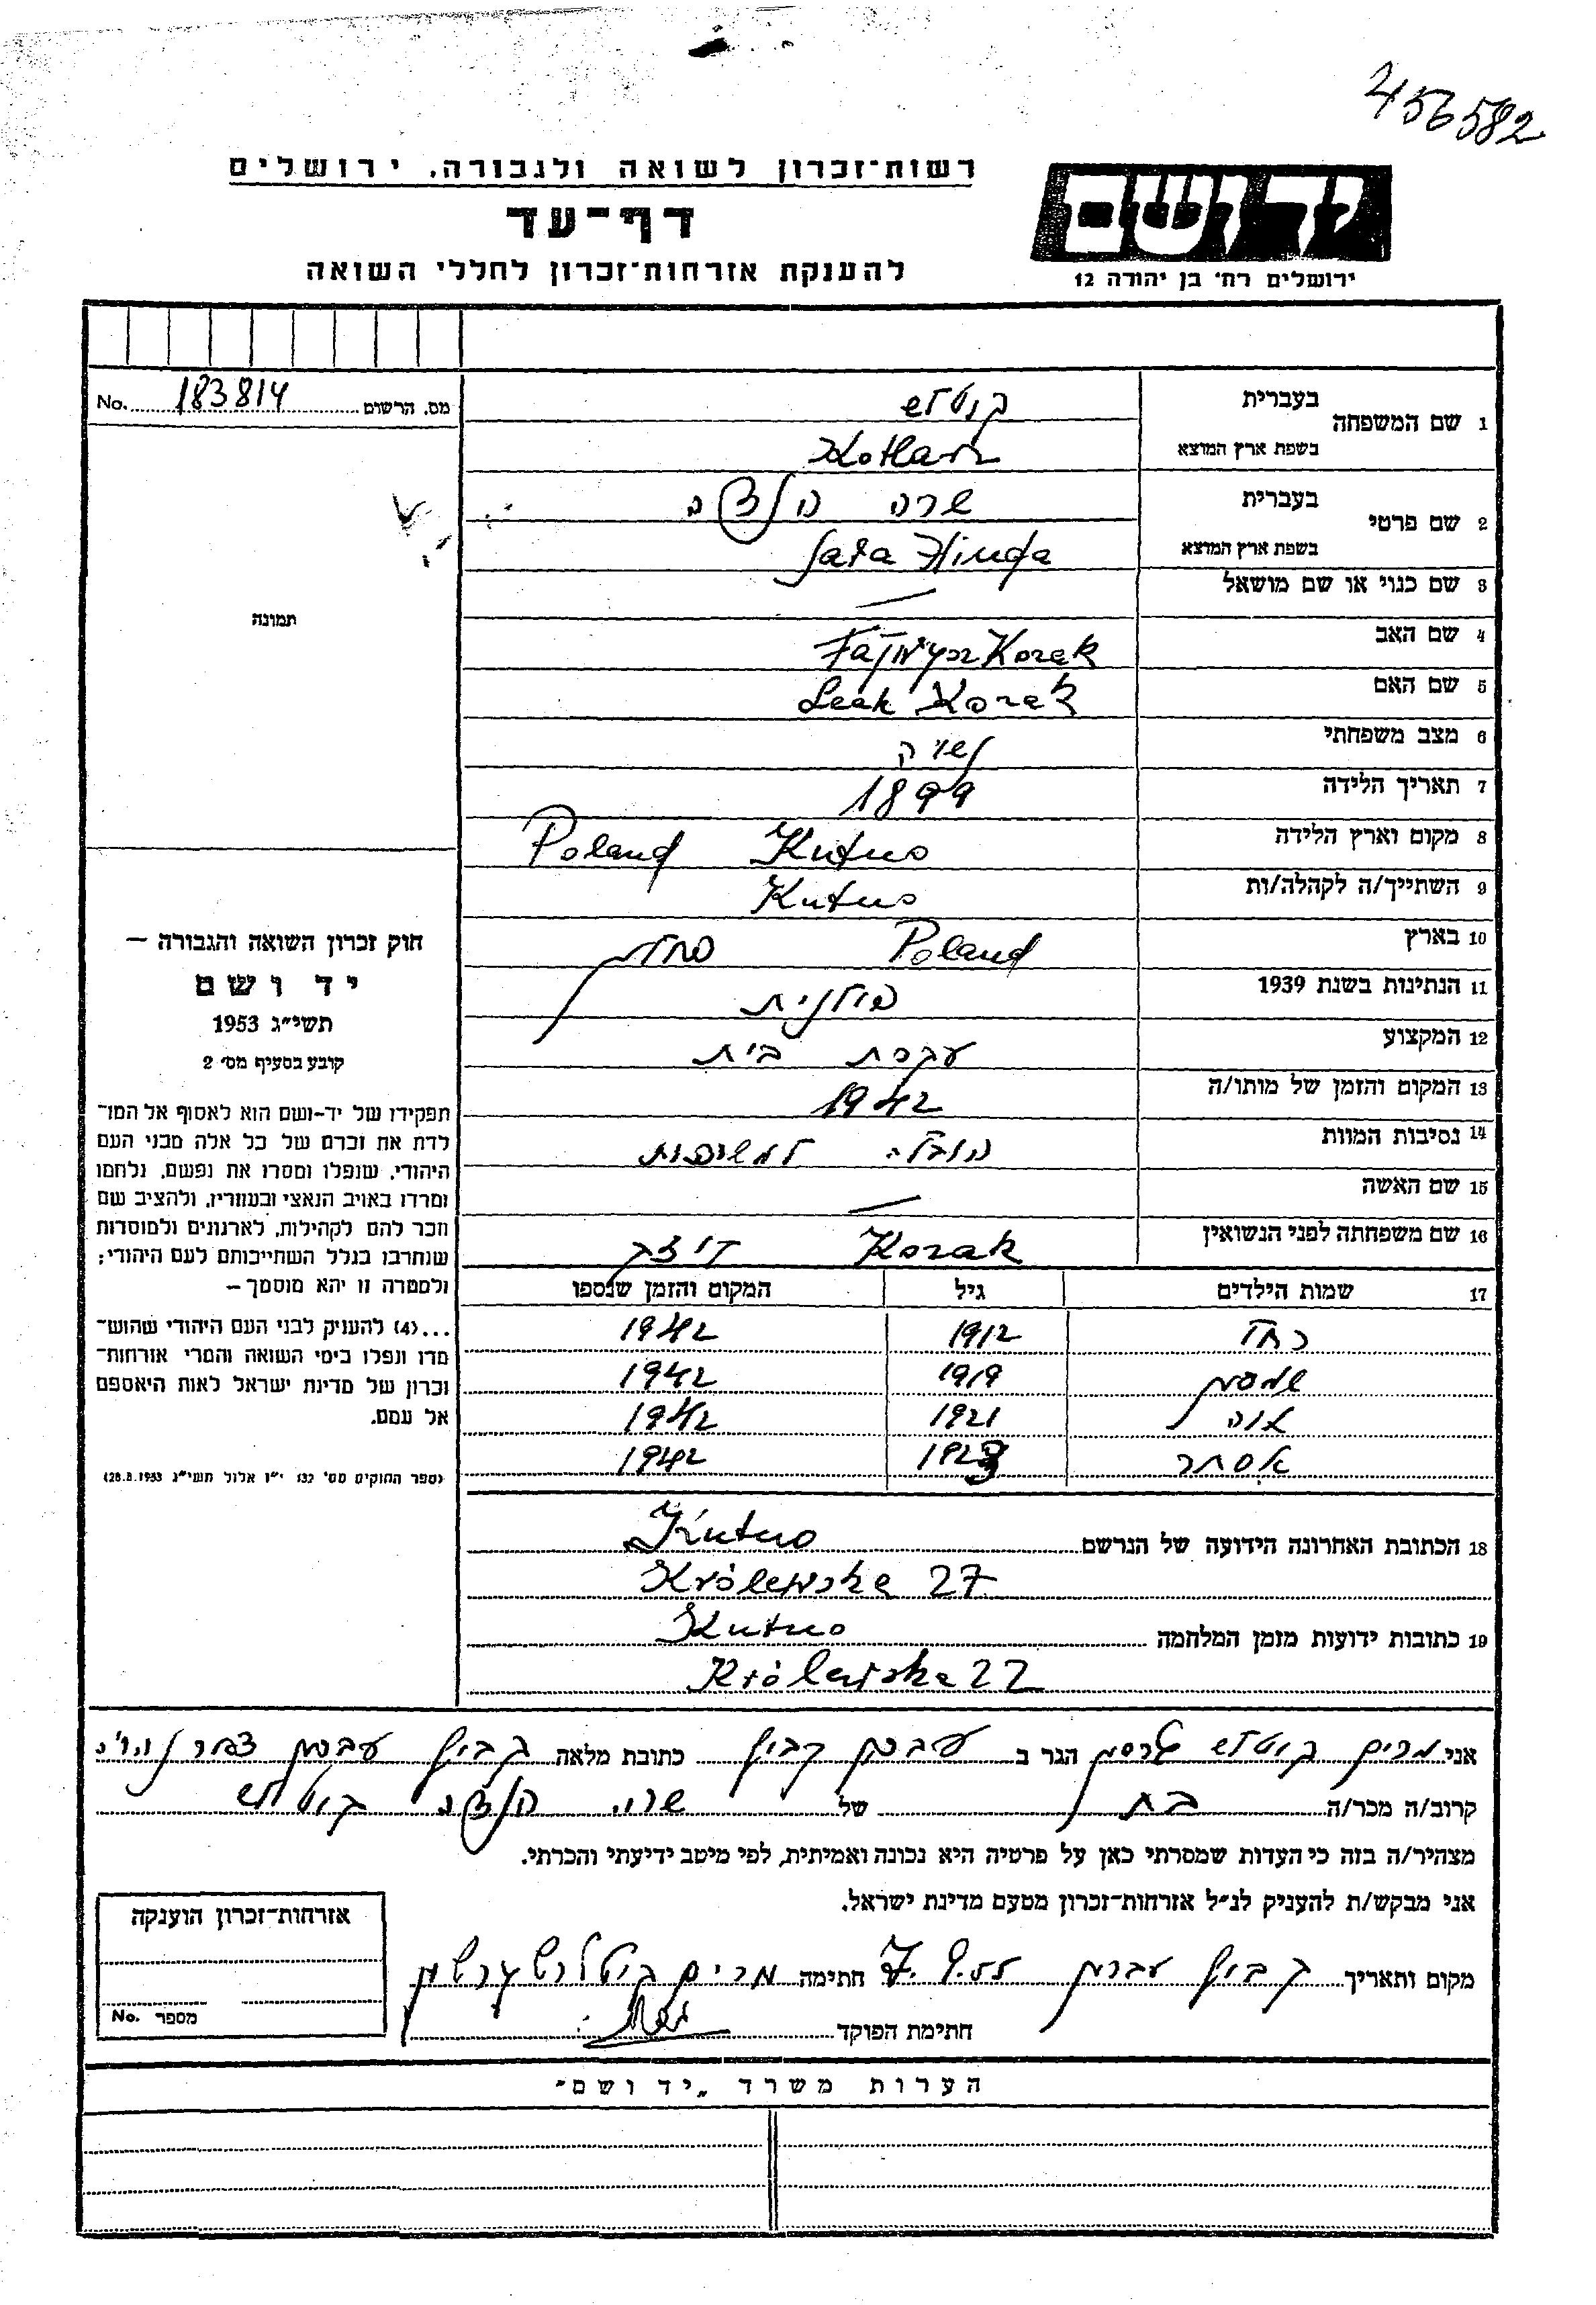 456582
רשות־זכרון לשואה ולגבורה. ירושלים
דף־עד
להענקת אזרחות־זכרון לחללי השואה
יד ושם
ירושלים רח' בן יהודה 12
No. 183814 מס. הרשום
תמונה
חוק זכרון השואה והגבורה —
יד ושם
תשי״ג 1953
קובע בסעיף מס' 2
תפקידו של יד-ושם הוא לאסוף אל המו־
לדת את זכרם של כל אלה מבני העם
היהודי, שנפלו ומסרו את נפשם, נלחמו
ומרדו באויב הנאצי ובעוזריו, ולהציב שם
וזכר להם לקהילות, לארגונים ולמוסדות
שנחרבו בגלל השתייכותם לעם היהודי;
ולמטרה זו יהא מוסמך —
...(4) להעניק לבני העם היהודי שהוש־
מדו ונפלו בימי השואה והמרי אזרחות־
זכרון של מדינת ישראל לאות היאספם
אל עמם.
(ספר החוקים מס' 132 י״ז אלול תשי״ג 28.8.1953)
1 שם המשפחה בעברית
בשפת ארץ המוצא Kotlarz
2 שם פרטי בעברית שרה הינדה
בשפת ארץ המוצא Sara Hinda
3 שם כנוי או שם מושאל —
4 שם האב Korak
5 שם האם Leah Korak
6 מצב משפחתי נשויה
7 תאריך הלידה 1899
8 מקום וארץ הלידה Kutno Poland
9 השתייך/ה לקהלה/ות Kutno
10 בארץ Poland פולין
11 הנתינות בשנת 1939 פולנית
12 המקצוע עקרת בית
13 המקום והזמן של מותו/ה 1942
14 נסיבות המוות הובלה למשרפות
15 שם האשה —
16 שם משפחתה לפני הנשואין Korak
17 שמות הילדים גיל המקום והזמן שנספו
רחל 1912 1942
1919 1942
1921 1942
אסתר 1923 1942
18 הכתובת האחרונה הידועה של הנרשם Kutno
Królewska 27
19 כתובות ידועות מזמן המלחמה Kutno
Królewska 22
אני מרים קוטלרש הגר ב עברון קבוץ כתובת מלאה קבוץ עברון
קרוב/ה מכר/ה בת של שרה הינדה קוטלרש
מצהיר/ה בזה כי העדות שמסרתי כאן על פרטיה היא נכונה ואמיתית, לפי מיטב ידיעתי והכרתי.
אני מבקש/ת להעניק לנ״ל אזרחות־זכרון מטעם מדינת ישראל.
מקום ותאריך קבוץ עברון 7.9.55 חתימה מרים קוטלרש
חתימת הפוקד
אזרחות־זכרון הוענקה
No. מספר
הערות משרד „יד ושם״